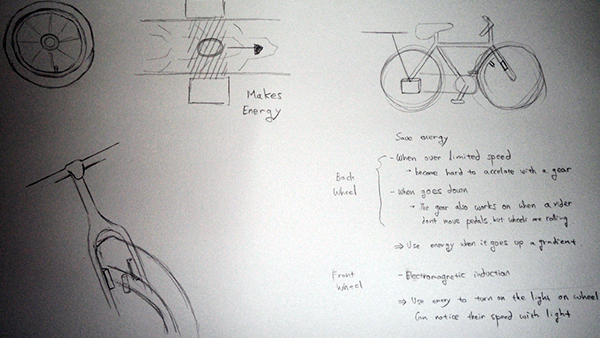 Makes
Energy
Save energy
Back
Wheel
- When over limited speed
→ become hard to accelate with a gear
- When goes down
→ The gear also works on when a rider
dont move pedals, but wheels are rolling
⇒ Use energy when it goes up a gradient
Front
Wheel
- Electromagnetic induction
⇒ Use energy to turn on the light on wheel
Can notice their speed with light